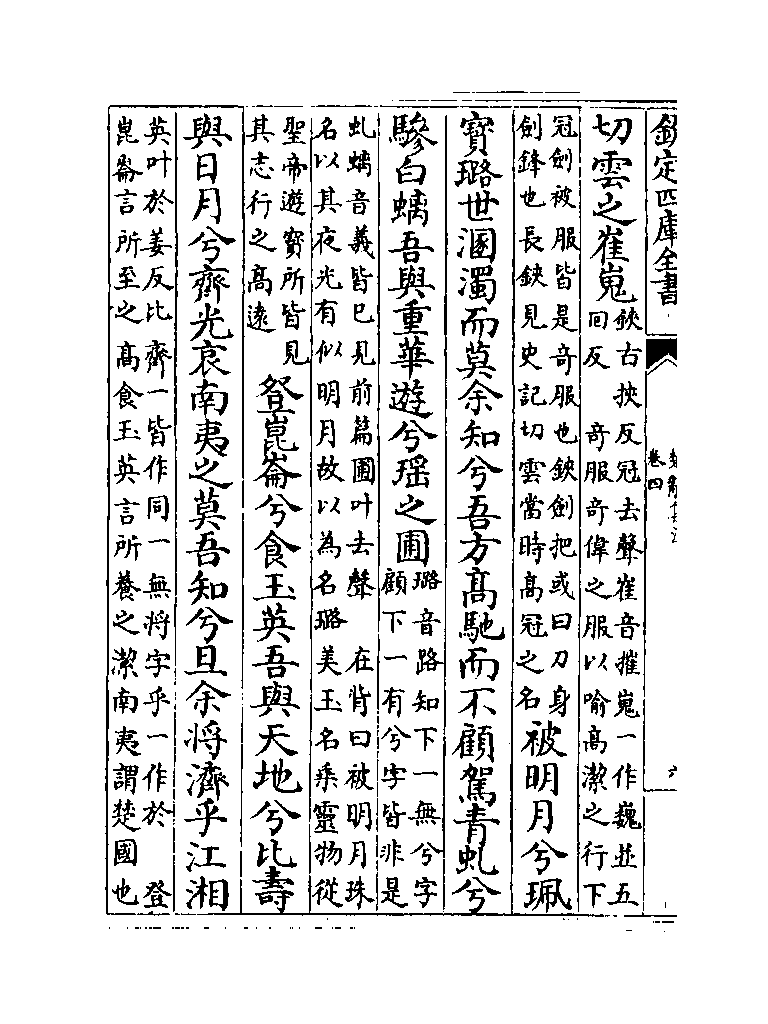 欽定四庫全書
卷四
切雲之崔嵬
鋏古挾反冠去聲崔音摧嵬一作巍並五
回反 奇服奇偉之服以喻髙潔之行下
冠劍被服皆是奇服也鋏劍把或曰刀身
劍鋒也長鋏見史記切雲當時髙冠之名
被明月兮珮
寳璐世溷濁而莫余知兮吾方髙馳而不顧駕青虬兮
驂白螭吾與重華遊兮瑶之圃
璐音路知下一無兮字
顧下一有兮字皆非是
虬螭音義皆已見前篇圃叶去聲 在背曰被明月珠
名以其夜光有似明月故以為名璐美玉名乘靈物從
聖帝遊寳所皆見
其志行之髙逺
登崑崙兮食玉英吾與天地兮比壽
與日月兮齊光哀南夷之莫吾知兮旦余將濟乎江湘
英叶於姜反比齊一皆作同一無將字乎一作於 登
崑崙言所至之髙食玉英言所養之潔南夷謂楚國也